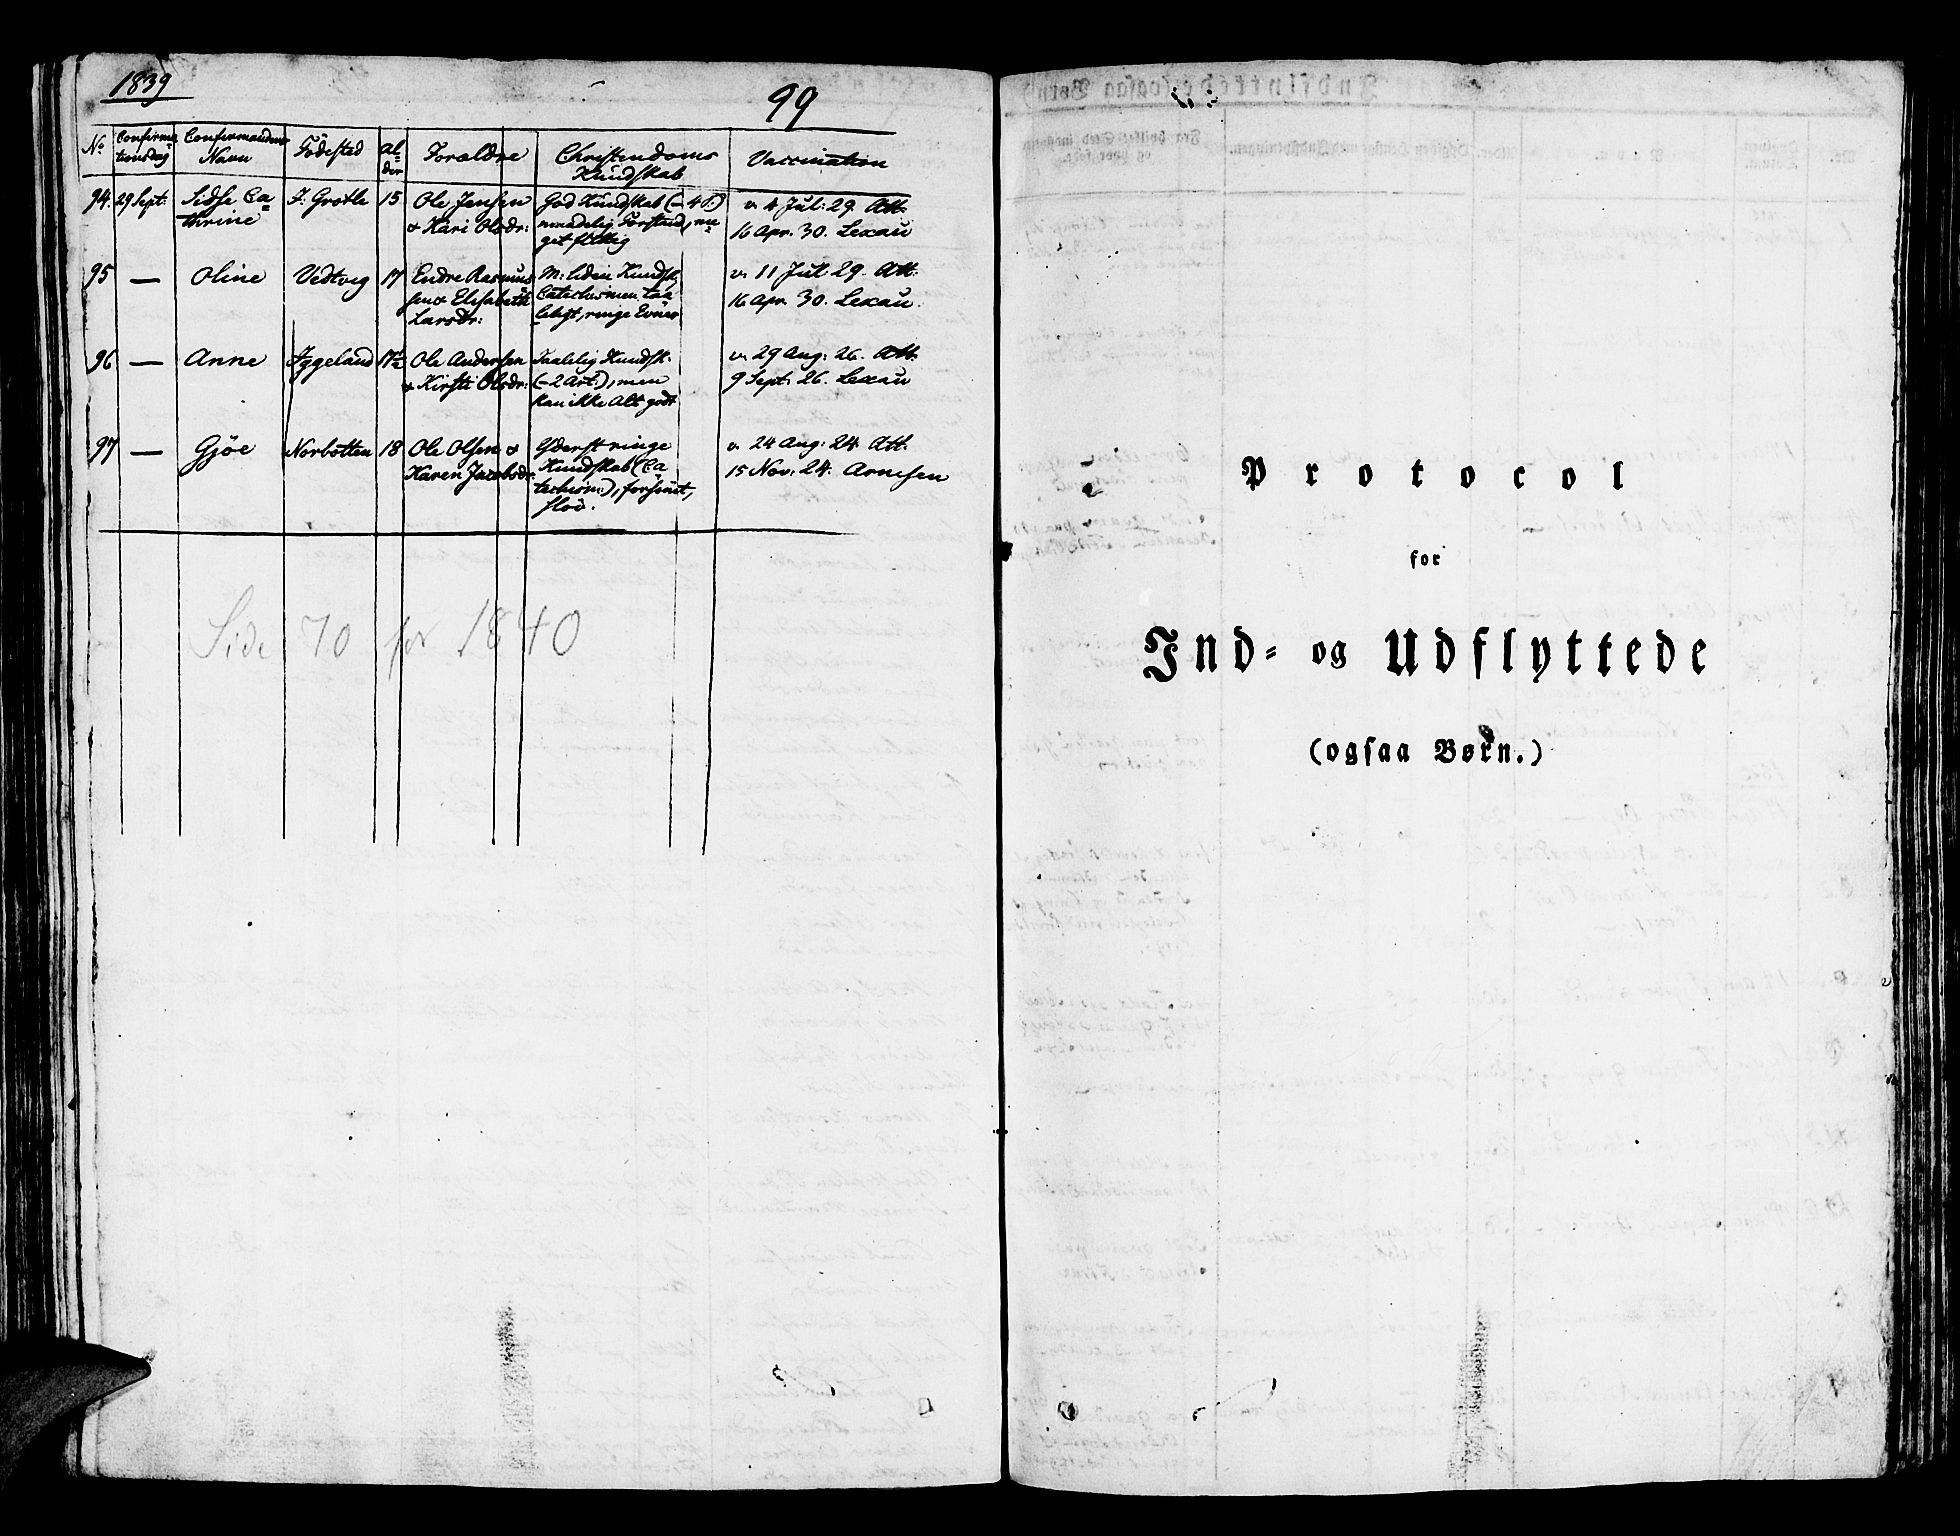 1839
99
No Confirmationsdag Confirmandens Navn Födested Alder Forældre Christendoms Kundskab Vaccination
94. 29 Sept: Sidse Ca= J: Grotle 15 Ole Jensen God Kundskab (- 4 P.) v. 4 Jul: 29. Att.
thrine & Kari Olsdr: maadelig Forstand, me=
get flittig 16 Apr. 30. Lexau
95 — Oline Vedtveg 17 Endre Rasmus M: liden Kundsk. v. 11 Jul. 29. Att.
sen & Elisabeth Catechismen taa 16 Apr. 30. Lexau.
Larsdr: leligt, ringe Evner
96 — Anne Iggeland 17½ Ole Andersen Taalelig Kundsk. v. 29 Aug: 26. Att.
& Kirsti Olsdr: (- 2 Art:), men 9 Sept: 26. Lexau
kan ikke Alt godt
97 — Gjöe Norbotten 18 Ole Olsen & Yderst ringe v. 24 Aug: 24. Att.
Karen Jacobsdr. Kundskab (Ca 15 Nov: 24. Arnesen
techism:), forsömt,
slöv.
Side 70 for 1840
Protocol
for
Ind= og Udflyttede
(ogsaa Børn.)